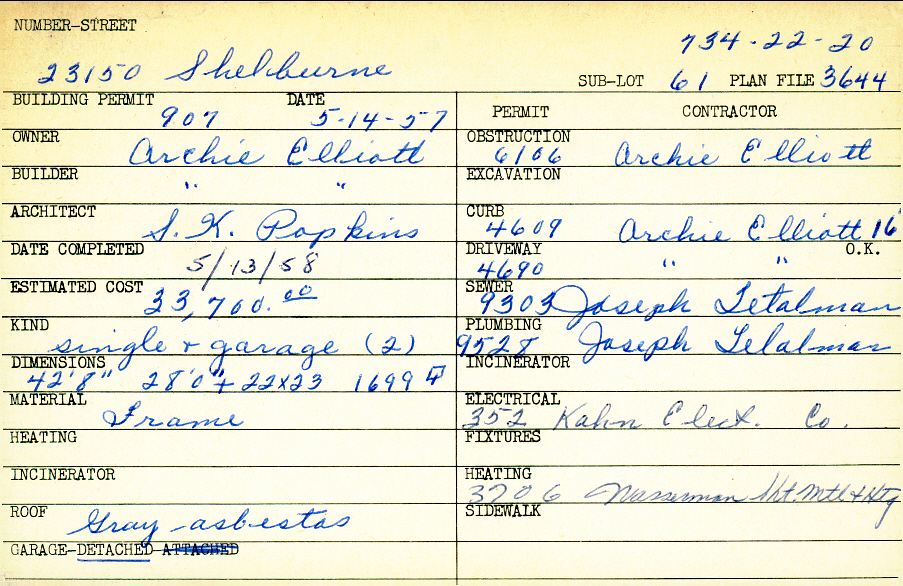 NUMBER-STREET
734-22-20
23150 Shelburne
SUB-LOT 61 PLAN FILE 3644
BUILDING PERMIT DATE
907 5-14-57
PERMIT CONTRACTOR
OWNER
Archie Elliott
OBSTRUCTION
6106 Archie Elliott
BUILDER
" "
EXCAVATION
ARCHITECT
S. K. Popkins
CURB
4609 Archie Elliott 16'
DATE COMPLETED
5/13/58
DRIVEWAY O.K.
4690 " "
ESTIMATED COST
33,700.00
SEWER
9303 Joseph
KIND
single + garage (2)
PLUMBING
9528 Joseph
DIMENSIONS
42'8" 28'0" + 22x23 1699
INCINERATOR
MATERIAL
Frame
ELECTRICAL
352 Kahn Elect. Co.
HEATING
FIXTURES
INCINERATOR
HEATING
3706 Wasserman Sht. Mtl & Htg
ROOF
Gray asbestas
SIDEWALK
GARAGE-DETACHED-ATTACHED